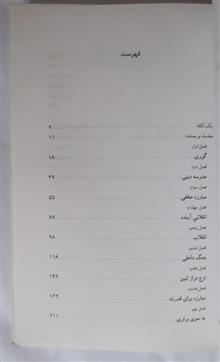 فهرست
یک نکته ۹
مقدمهٔ نویسنده ۱۱
فصل اول:
گوری ۱۸
فصل دوم:
مدرسه دینی ۳۹
فصل سوم:
مبارزه مخفی ۵۵
فصل چهارم:
انقلابی آینده ۸۷
فصل پنجم:
انقلاب ۹۸
فصل ششم:
جنگ داخلی ۱۱۸
فصل هفتم:
نزع دراز لنین ۱۴۹
فصل هشتم:
مبارزه برای قدرت ۱۶۴
فصل نهم:
به سوی برابری ۲۱۱